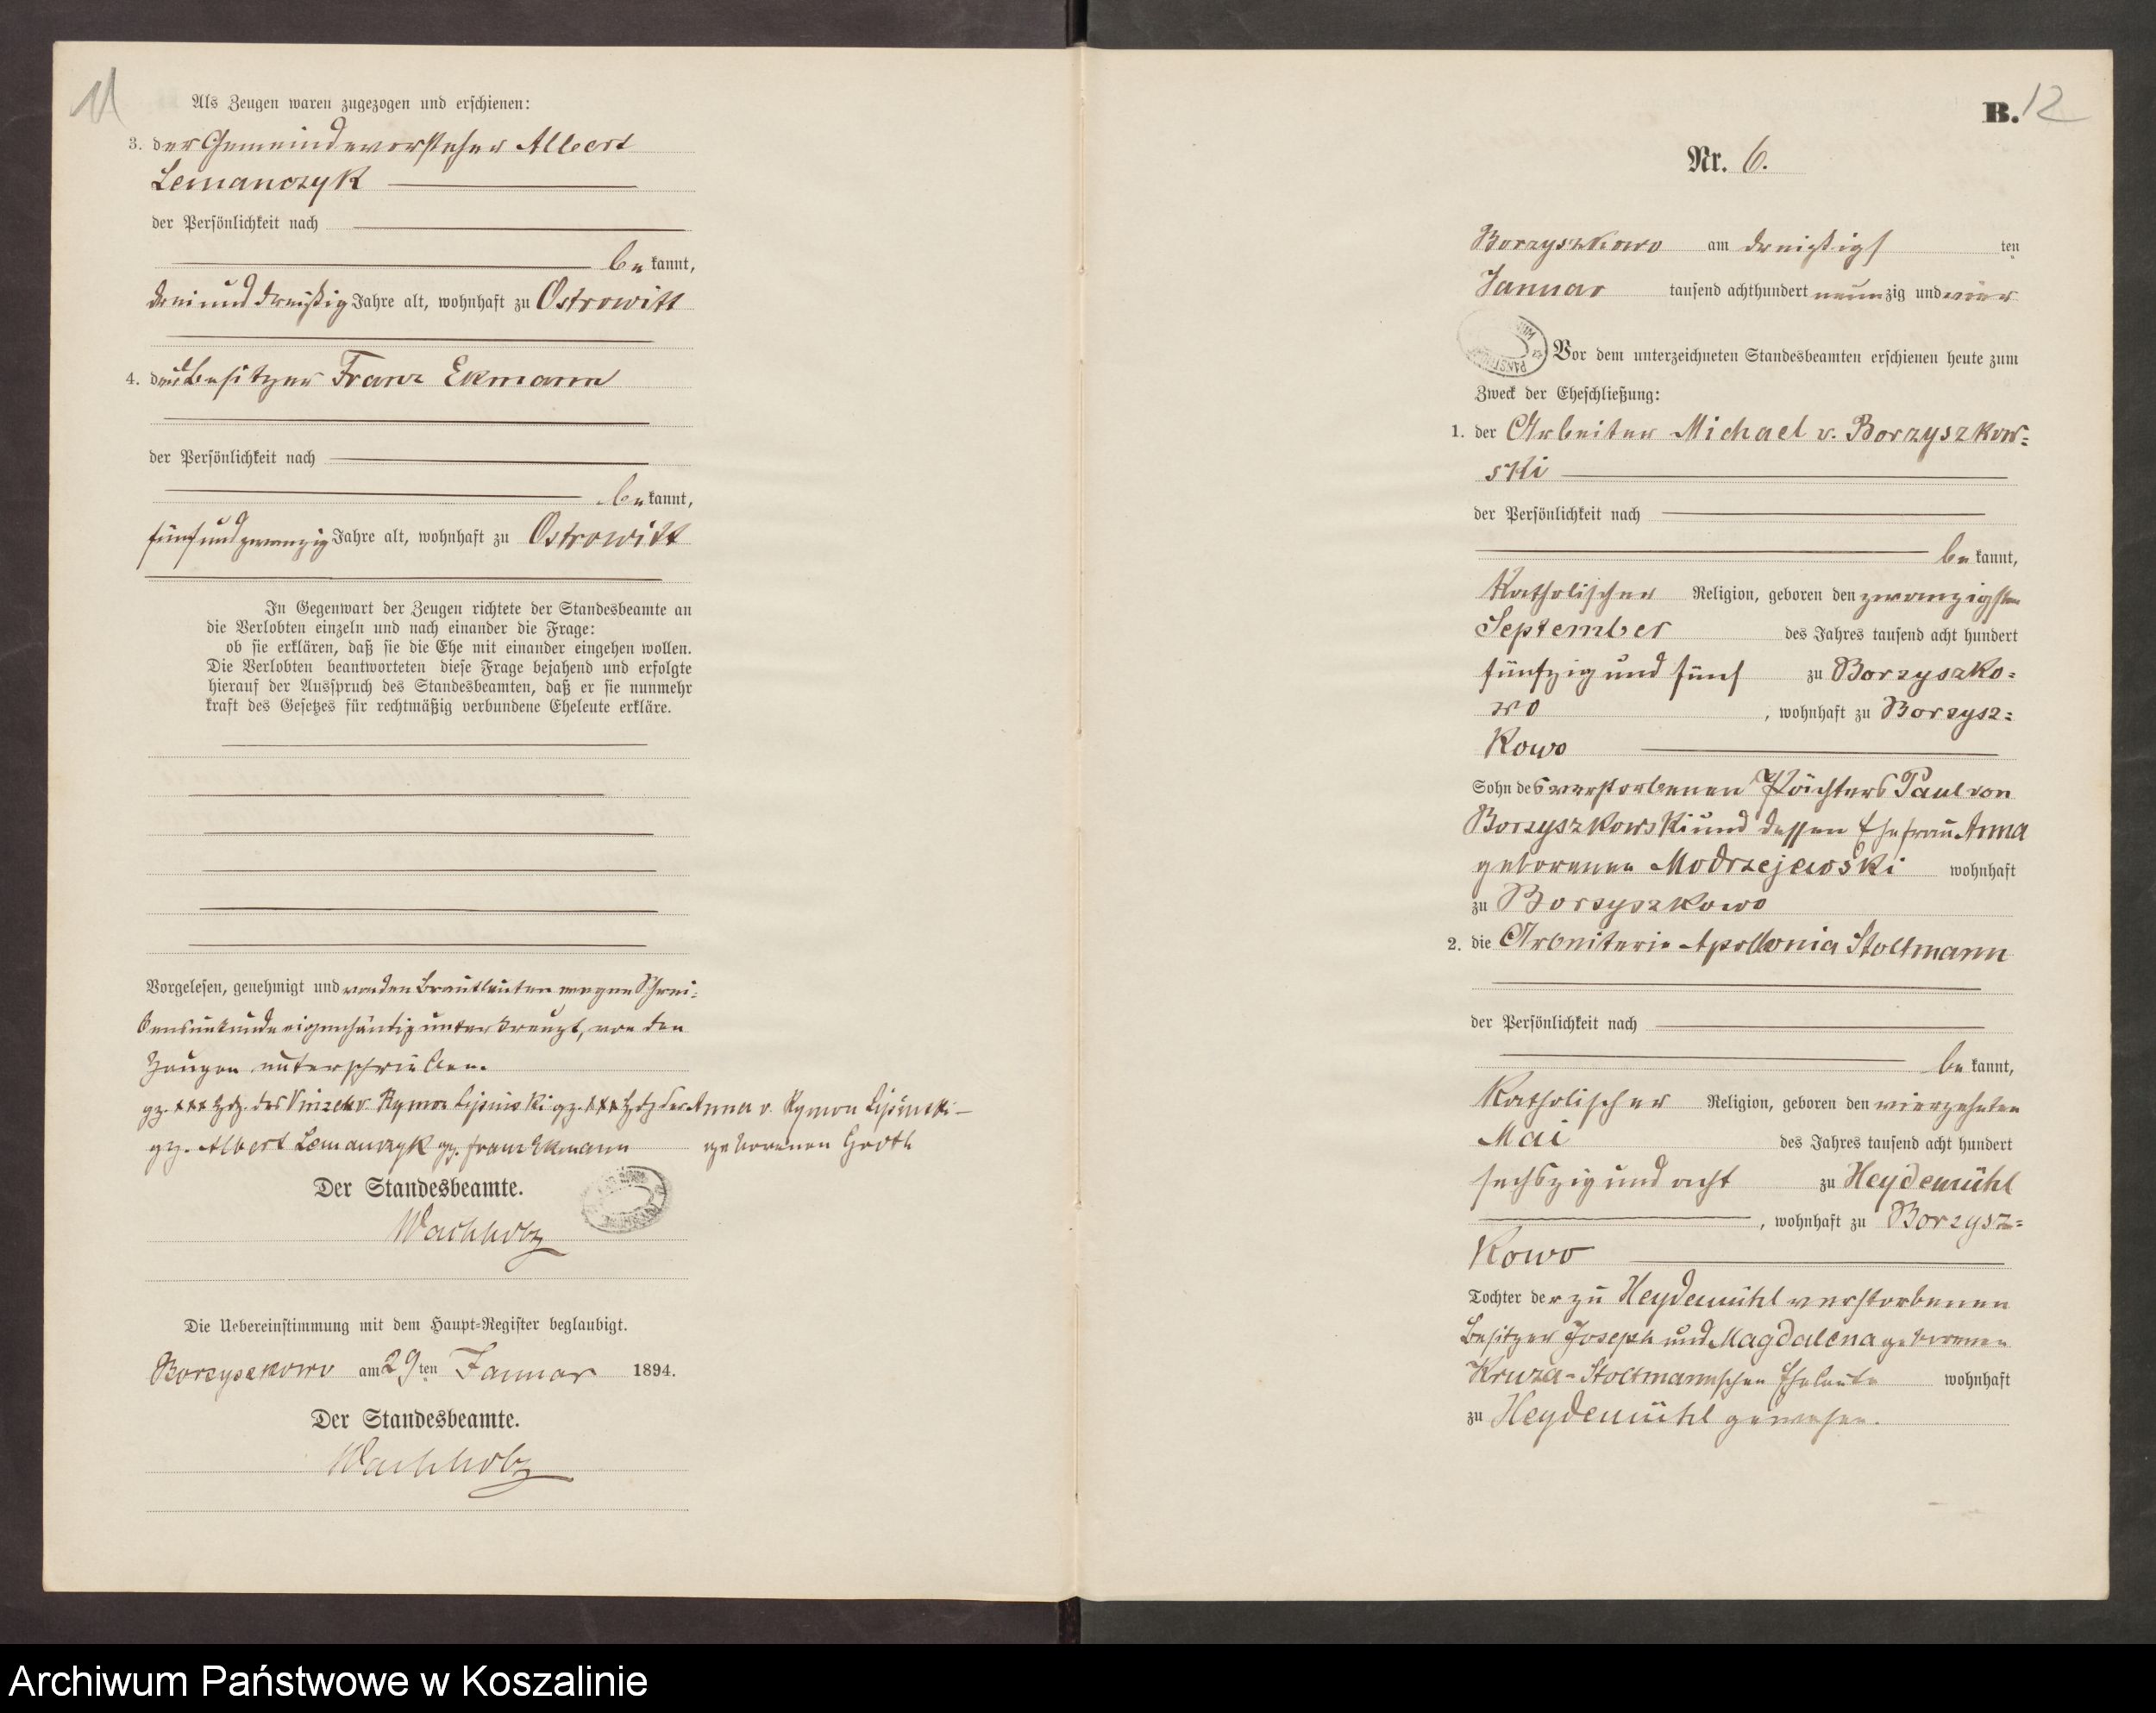 11
Als Zeugen waren zugezogen und erschienen:
3. der Gemeindevorsteher Albert
Lemanczyk
der Persönlichkeit nach
be kannt,
drei und dreißig Jahre alt, wohnhaft zu Ostrowitt
4. der Besitzer Franz Ekmann
der Persönlichkeit nach
be kannt,
fünf und zwanzig Jahre alt, wohnhaft zu Ostrowitt
In Gegenwart der Zeugen richtete der Standesbeamte an
die Verlobten einzeln und nach einander die Frage:
ob sie erklären, daß sie die Ehe mit einander eingehen wollen.
Die Verlobten beantworteten diese Frage bejahend und erfolgte
hierauf der Ausspruch des Standesbeamten, daß er sie nunmehr
kraft des Gesetzes für rechtmäßig verbundene Eheleute erkläre.
Vorgelesen, genehmigt und von den Brautleuten wegen Schrei-
bensunkunde eigenhändig unterkreuzt, von den
Zeugen unterschrieben.
gz. xxx Hdz. des Vinzent v. Rymon Lipinski gz. xxx Hdz der Anna v. Rymon Lipinski –
gz. Albert Lemanczyk gz. Franz Ekmann geborenen Groth
Der Standesbeamte.
Wachholz
Die Uebereinstimmung mit dem Haupt-Register beglaubigt.
Borzyszkowo am 29 ten Januar 1894.
Der Standesbeamte.
Wachholz
B. 12
Nr. 6.
Borzyszkowo am dreißigs ten
Januar tausend achthundert neunzig und vier
Vor dem unterzeichneten Standesbeamten erschienen heute zum
Zweck der Eheschließung:
1. der Arbeiter Michael v. Borzyszkow-
ski
der Persönlichkeit nach
be kannt,
Katholischer Religion, geboren den zwanzigsten
September des Jahres tausend acht hundert
fünfzig und fünf zu Borzyszko-
wo , wohnhaft zu Borzysz-
kowo
Sohn des verstorbenen Pächters Paul von
Borzyszkowski und dessen Ehefrau Anna
geborenen Modrzejewski wohnhaft
zu Borzyszkowo
2. die Arbeiterin Apollonia Stoltmann
der Persönlichkeit nach
be kannt,
Katholischer Religion, geboren den vierzehnten
Mai des Jahres tausend acht hundert
sechszig und acht zu Heydemühl
, wohnhaft zu Borzysz-
kowo
Tochter der zu Heydemühl verstorbenen
Besitzer Joseph und Magdalena geborenen
Kruza-Stoltmannschen Eheleute wohnhaft
zu Heydemühl gewesen.
Archiwum Państwowe w Koszalinie